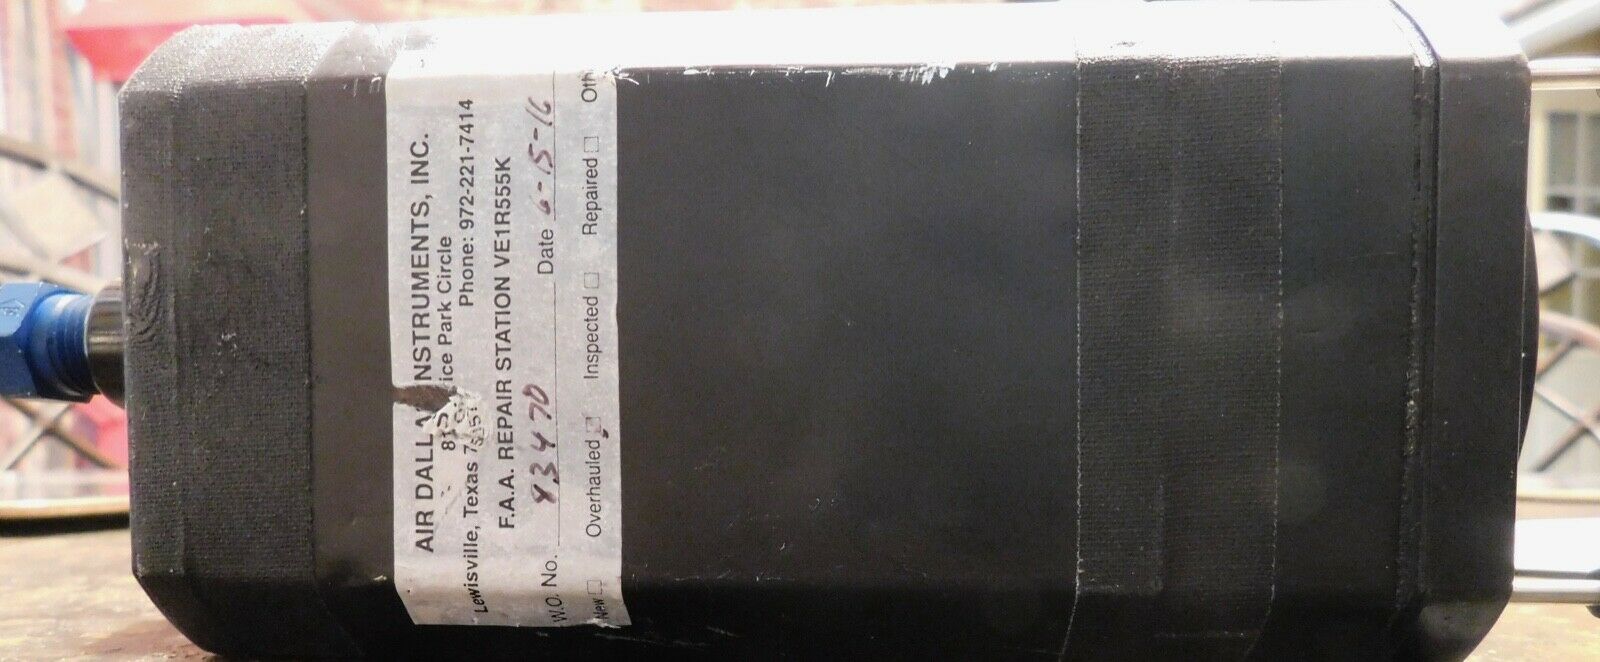 AIR DALLA NSTRUMENTS, INC.
81 ice Park Circle
Lewisville, Texas 7 Phone: 972-221-7414
F.A.A. REPAIR STATION VE1R555K
W.O. No. 93470 Date 6-15-16
New Overhauled Inspected Repaired Oth